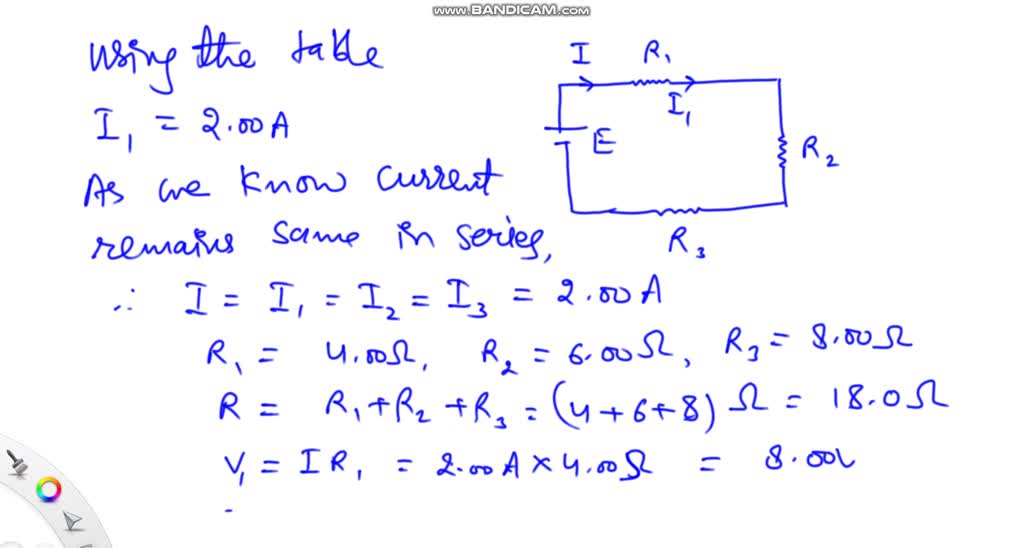 www.BANDICAM.com
Using the table
I₁ = 2.00A
As we know current
remains same in series,
∴ I = I₁ = I₂ = I₃ = 2.00A
R₁ = 4.00Ω, R₂ = 6.00Ω, R₃ = 8.00Ω
R = R₁+R₂+R₃ = (4+6+8) Ω = 18.0Ω
V₁ = IR₁ = 2.00A × 4.00Ω = 8.00V
I R₁
I₁
E
R₂
R₃